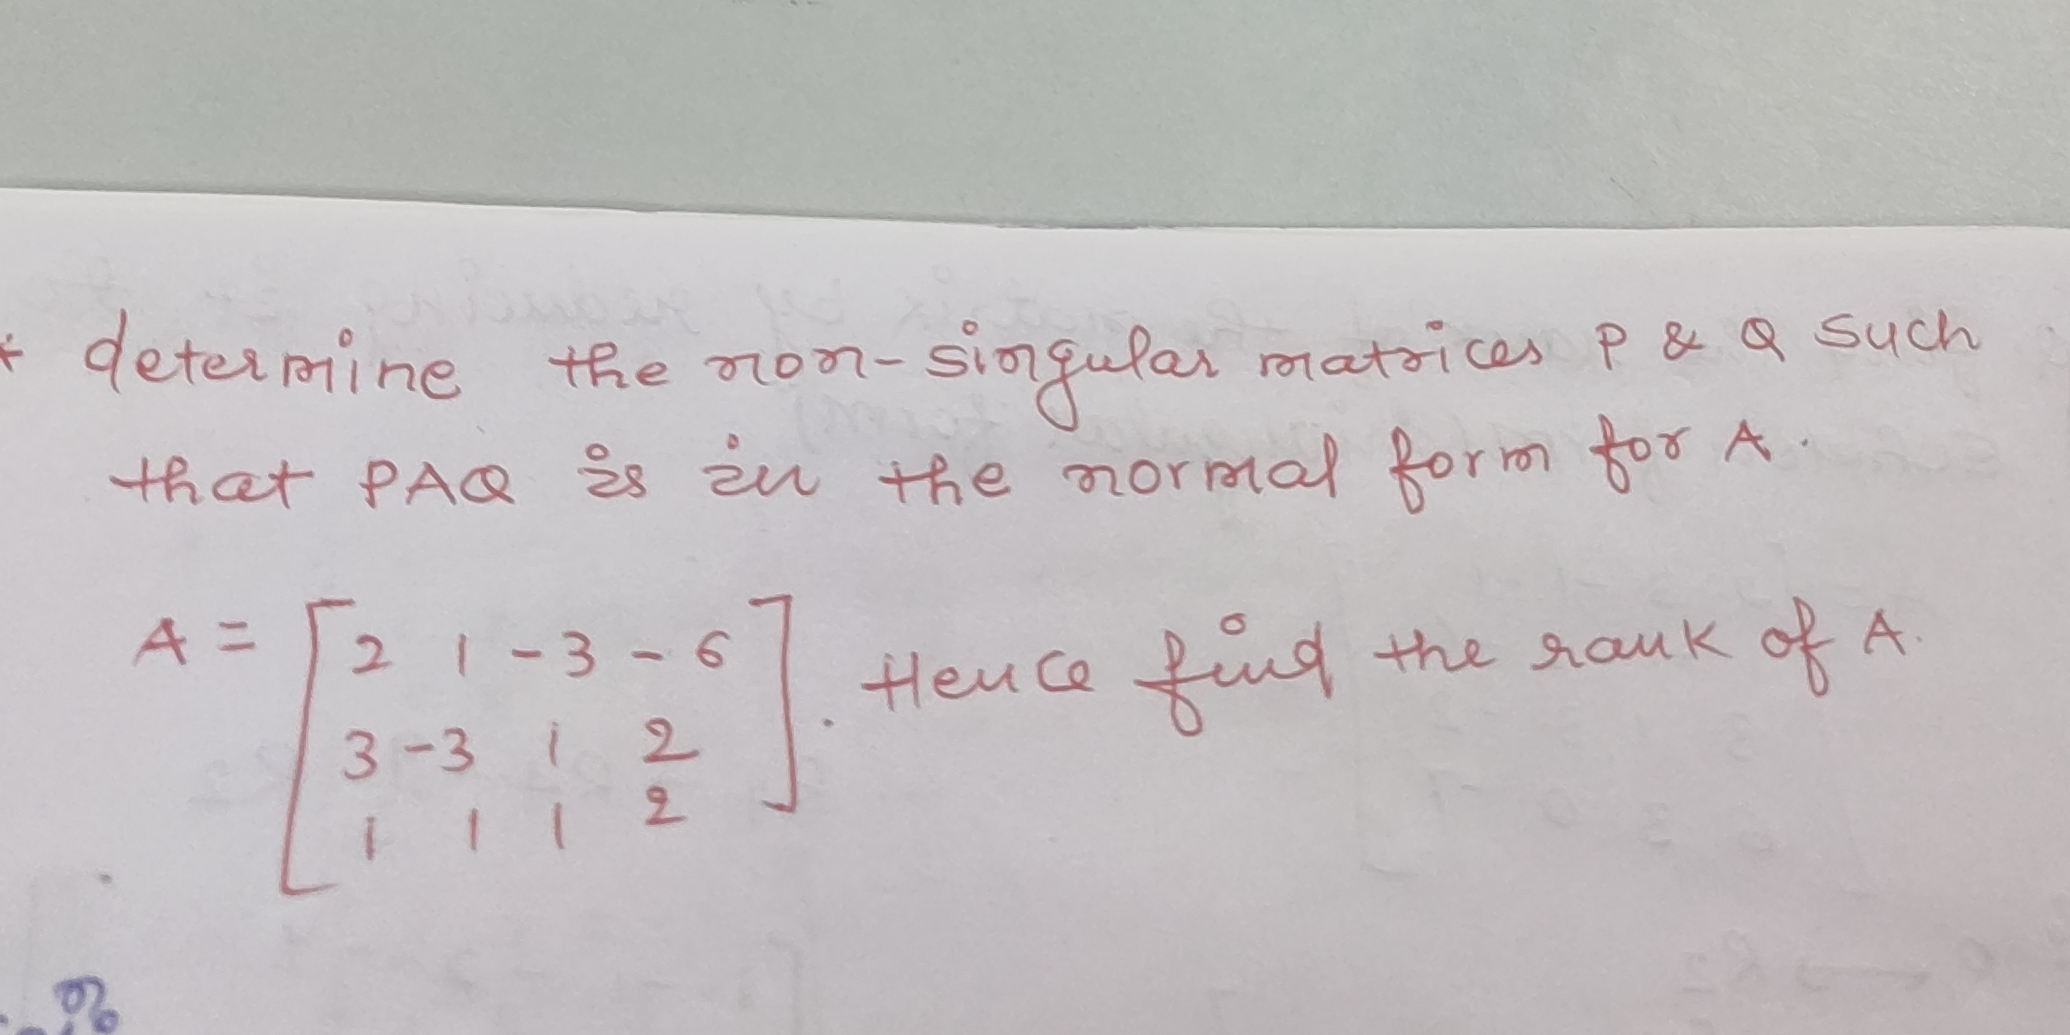 * determine the non-singular matrices P & Q such
that PAQ is in the normal form for A.
A = [2 1 -3 -6]. Hence find the rank of A.
3 -3 1 2
1 1 1 2